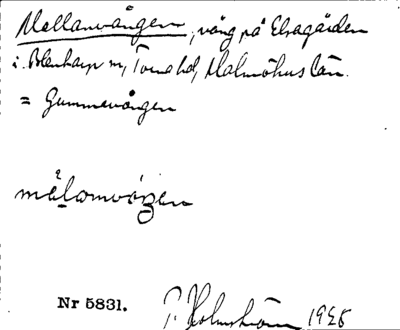 Mellanvången, väng på Elsagården
i. Blenharp sn, Torna hd, Malmöhus län.
= Gummevången
mẹ̊laṃvåŋen
Nr 5831.
P. Holmström 1928